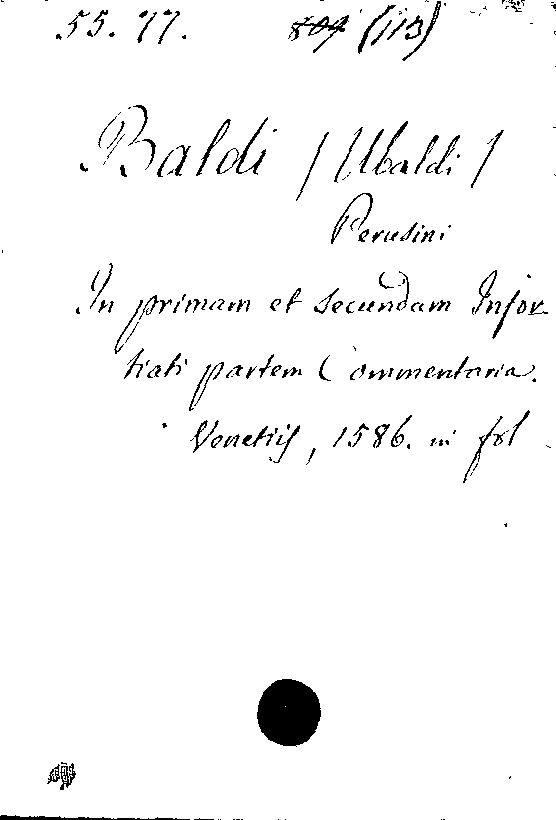 55. 77. 809 (113)
Baldi / Ubaldi /
Perusini
In primam et secundam Infor-
tiati partem Commentaria.
Venetiis, 1586. in fol